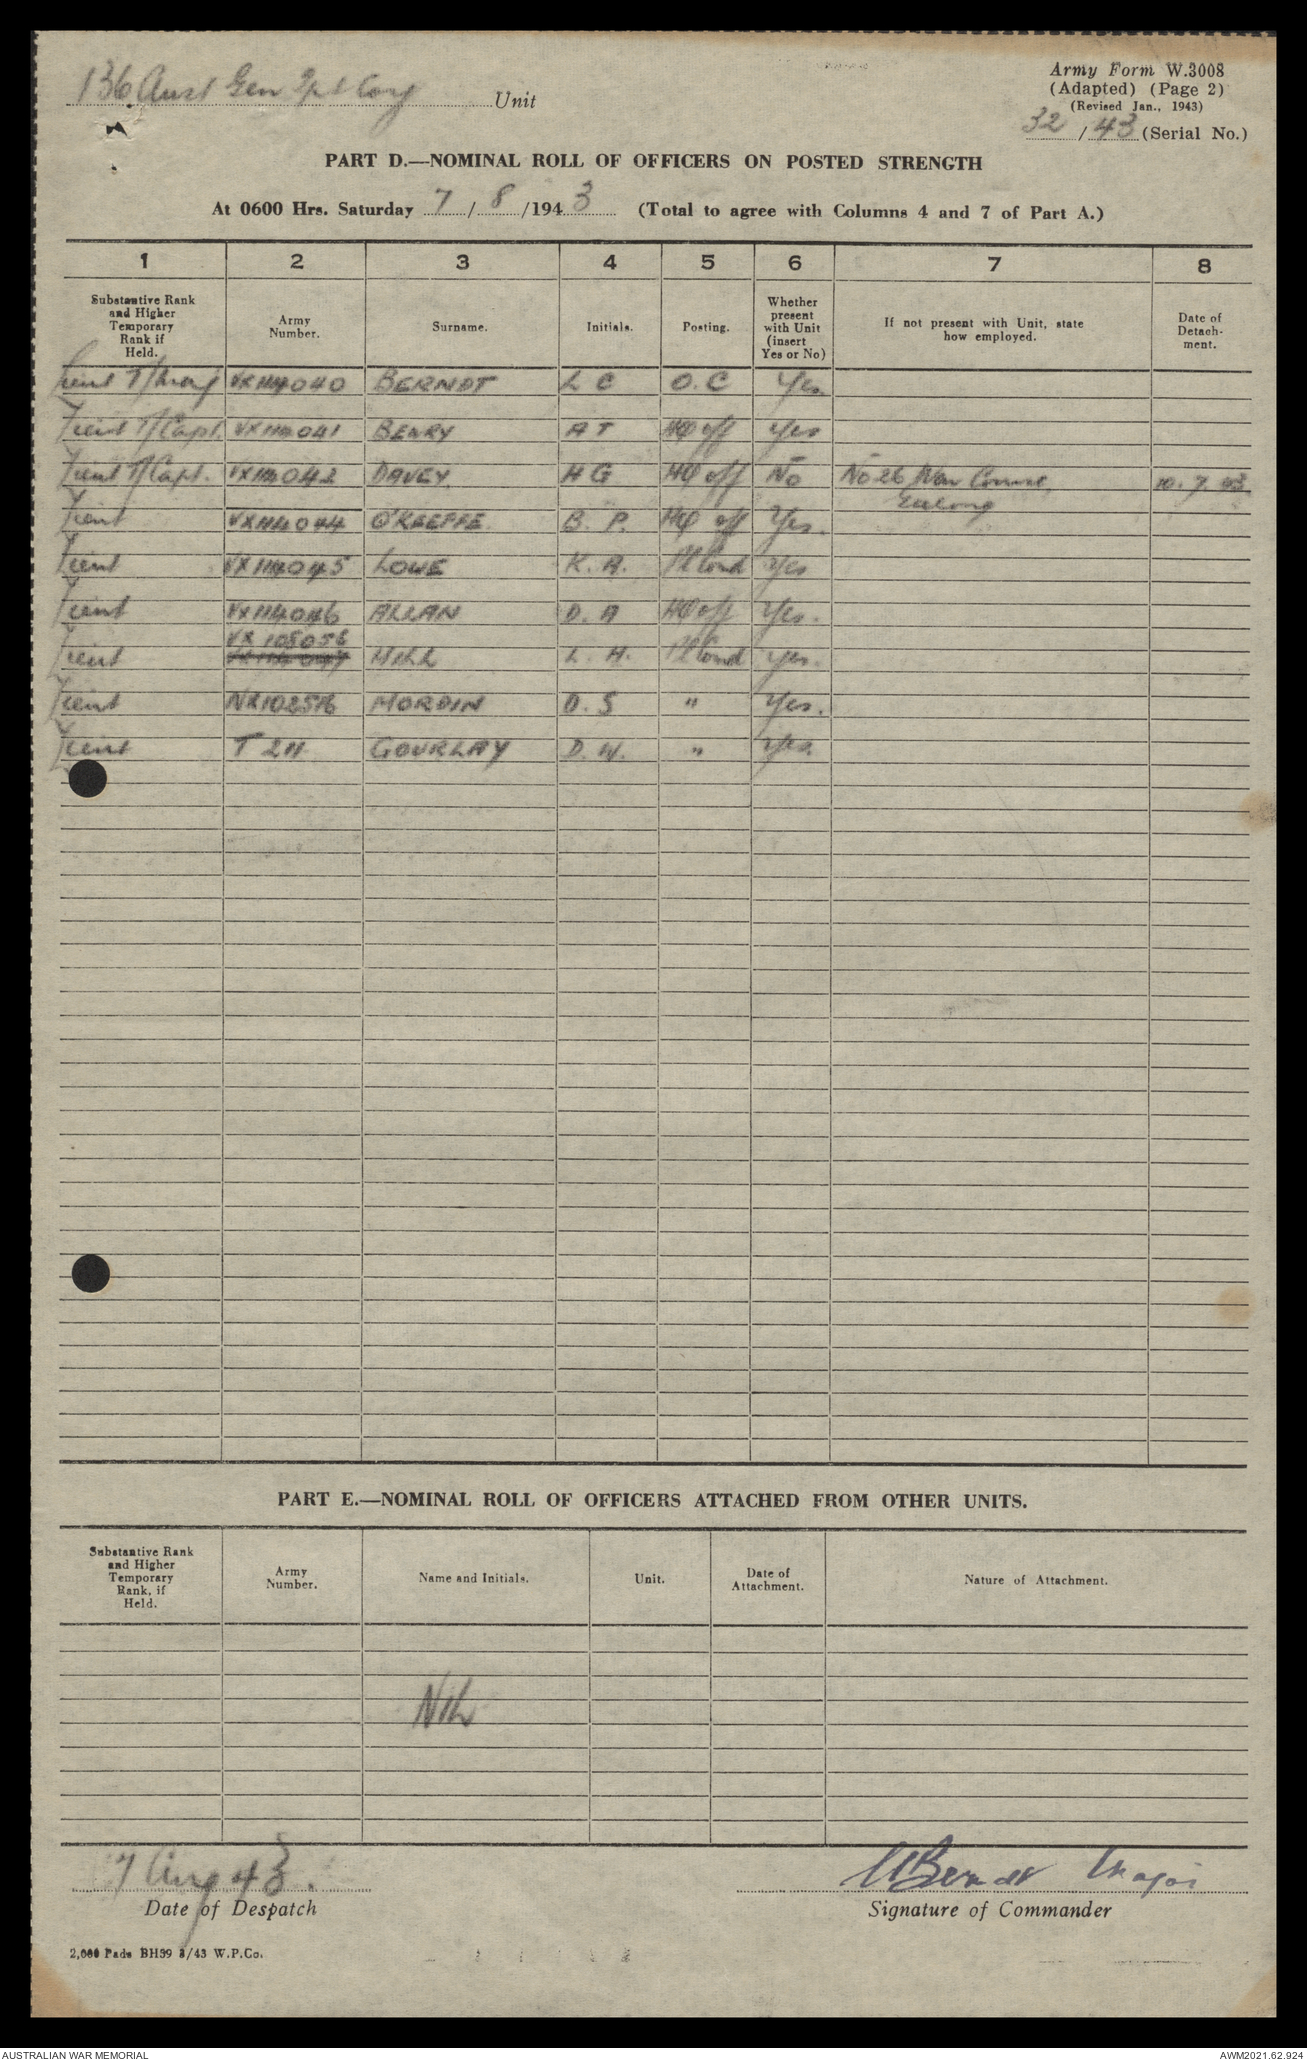 136 Aust Gen Tpt Coy Unit
Army Form W.3008
(Adapted) (Page 2)
(Revised Jan., 1943)
32 / 43 (Serial No.)
PART D.—NOMINAL ROLL OF OFFICERS ON POSTED STRENGTH
At 0600 Hrs. Saturday 7 / 8 /194 3 (Total to agree with Columns 4 and 7 of Part A.)
1 2 3 4 5 6 7 8
Substantive Rank and Higher Temporary Rank if Held. Army Number. Surname. Initials. Posting. Whether present with Unit (insert Yes or No) If not present with Unit, state how employed. Date of Detach-ment.
Lieut T/Maj VX114040 BERNDT L C O.C Yes.
Lieut T/Capt. VX114041 BENRY A T HQ off Yes
Lieut T/Capt. VX114042 DAVEY. H G HQ off No No 26 Course, 10.7.43
Geelong
Lieut VX114044 O'KEEFFE B. P. HQ off Yes.
Lieut VX114045 LOWE K. A. Pl Comd Yes
Lieut VX114046 ALLAN D. A HQ off Yes.
VX 105056
Lieut HILL L. H. Pl Comd yes.
Lieut NX102516 MORDIN D. S " Yes.
Lieut T 211 GOURLAY D. W. " Yes
PART E.—NOMINAL ROLL OF OFFICERS ATTACHED FROM OTHER UNITS.
Substantive Rank and Higher Temporary Rank, if Held. Army Number. Name and Initials. Unit. Date of Attachment. Nature of Attachment.
NIL
7 Aug 43.
Berndt Major
Date of Despatch
Signature of Commander
2,000 Pads BH39 3/43 W.P.Co.
AUSTRALIAN WAR MEMORIAL
AWM2021.62.924